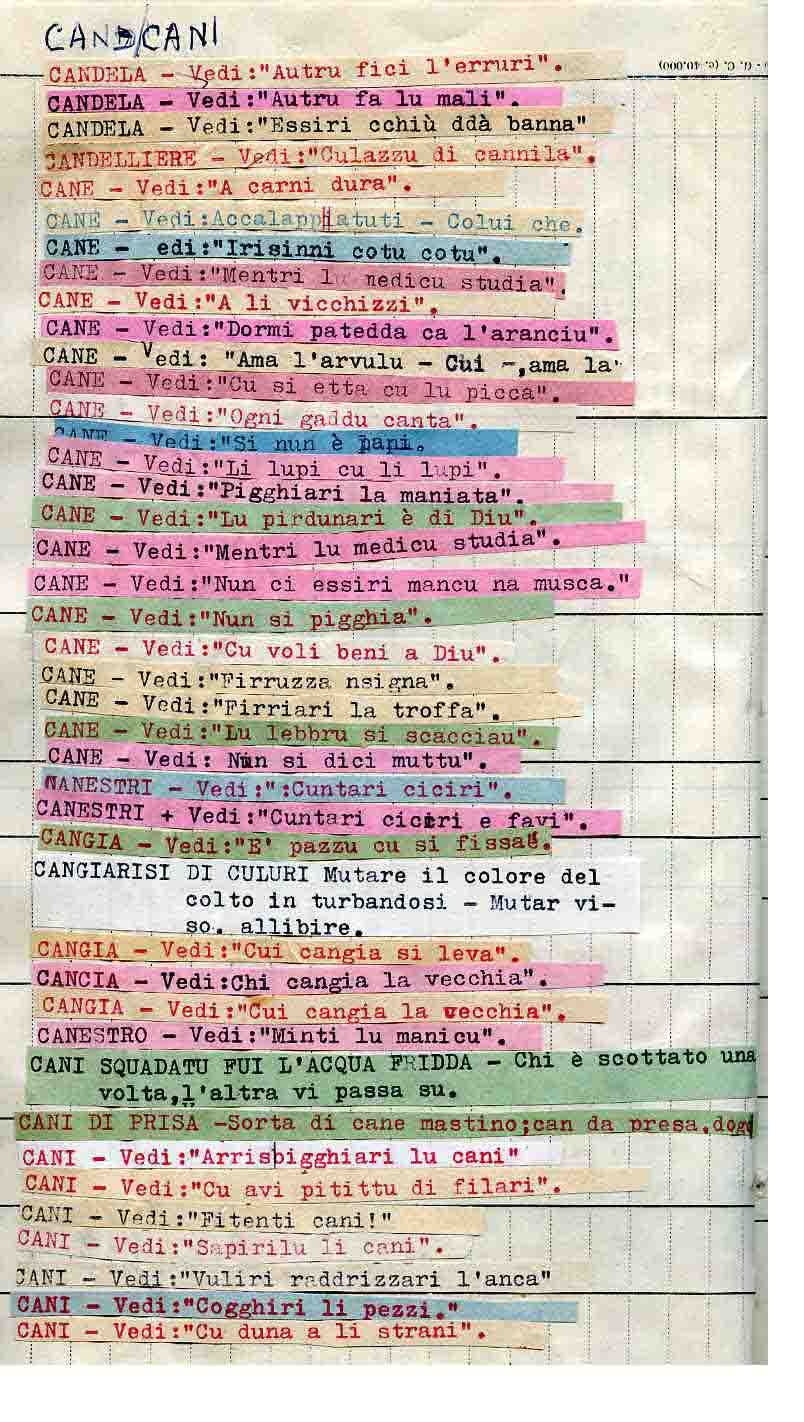 CAND/CANI
- G. C. (c. 40.000)
CANDELA - Vedi:"Autru fici l'erruri".
CANDELA - Vedi:"Autru fa lu mali".
CANDELA - Vedi:"Essiri cchiù ddà banna"
CANDELLIERE - Vedi:"Culazzu di cannila".
CANE - Vedi:"A carni dura".
CANE - Vedi:Accalappiatuti - Colui che.
CANE - edi:"Irisinni cotu cotu".
CANE - Vedi:"Mentri lu medicu studia".
CANE - Vedi:"A li vicchizzi".
CANE - Vedi:"Dormi patedda ca l'aranciu".
CANE - Vedi: "Ama l'arvulu - Cui -,ama la
CANE - Vedi:"Cu si etta cu lu picca".
CANE - Vedi:"Ogni gaddu canta".
CANE - Vedi:"Si nun è pani.
CANE - Vedi:"Li lupi cu li lupi".
CANE - Vedi:"Pigghiari la maniata".
CANE - Vedi:"Lu pirdunari è di Diu".
CANE - Vedi:"Mentri lu medicu studia".
CANE - Vedi:"Nun ci essiri mancu na musca."
CANE - Vedi:"Nun si pigghia".
CANE - Vedi:"Cu voli beni a Diu".
CANE - Vedi:"Firruzza nsigna".
CANE - Vedi:"Firriari la troffa".
CANE - Vedi:"Lu lebbru si scacciau".
CANE - Vedi: Nun si dici muttu".
CANESTRI - Vedi:":Cuntari ciciri".
CANESTRI + Vedi:"Cuntari ciciri e favi".
CANGIA - Vedi:"E' pazzu cu si fissa".
CANGIARISI DI CULURI Mutare il colore del
colto in turbandosi - Mutar vi-
so. allibire.
CANGIA - Vedi:"Cui cangia si leva".
CANCIA - Vedi:Chi cangia la vecchia".
CANGIA - Vedi:"Cui cangia la vecchia".
CANESTRO - Vedi:"Minti lu manicu".
CANI SQUADATU FUI L'ACQUA FRIDDA - Chi è scottato una
volta,l'altra vi passa su.
CANI DI PRISA -Sorta di cane mastino;can da presa.dogo
CANI - Vedi:"Arrisbigghiari lu cani"
CANI - Vedi:"Cu avi pitittu di filari".
CANI - Vedi:"Fitenti cani!"
CANI - Vedi:"Sapirilu li cani".
CANI - Vedi:"Vuliri raddrizzari l'anca"
CANI - Vedi:"Cogghiri li pezzi."
CANI - Vedi:"Cu duna a li strani".